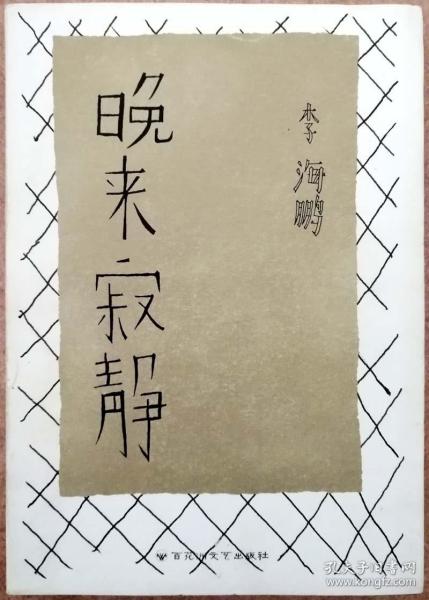 晚来寂静
李海鹏
百花洲文艺出版社
孔夫子旧书网
www.kongfz.com